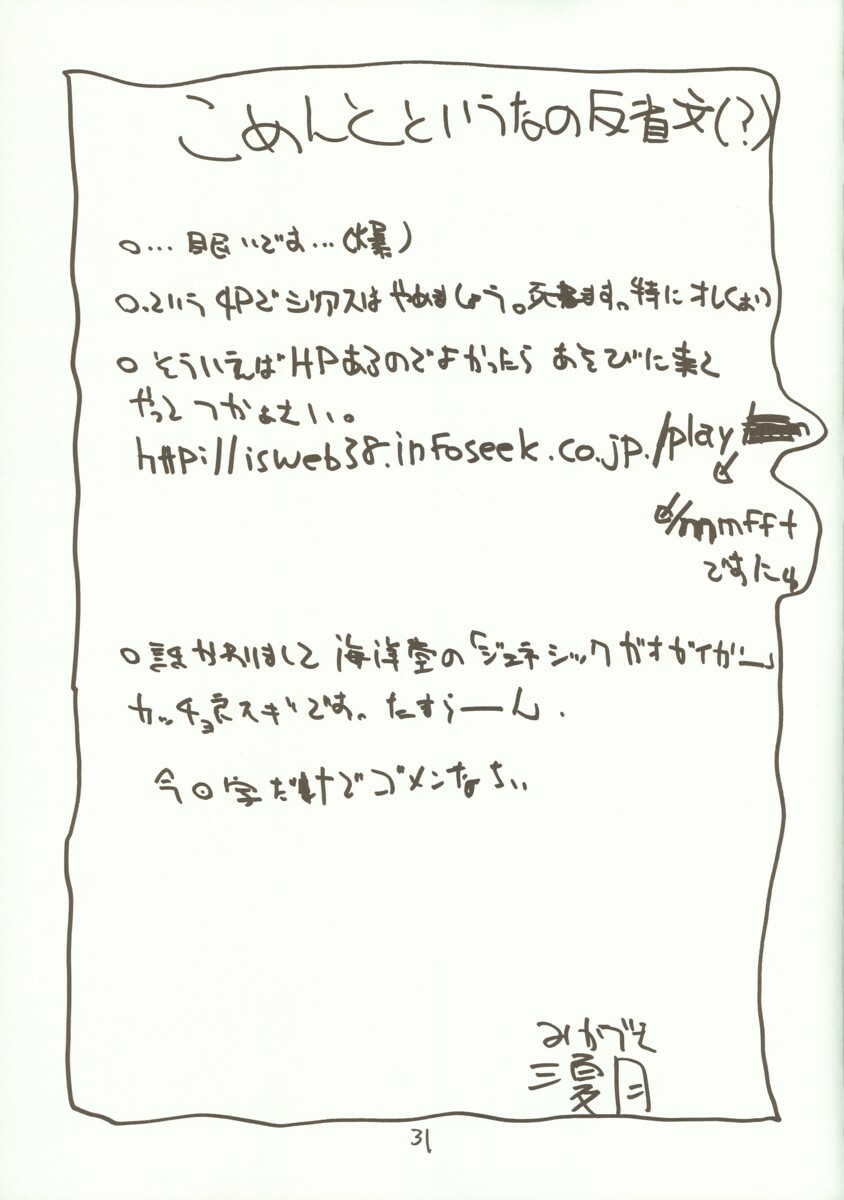 こめんとというなの反省文(?)
○…眠いです…(爆)
○.という4Pでジアスは やめましょう。死ねます。特にオレ(ぉぃ)
○ そういえばHPあるのでよかったら あそびに来て
やって つかぁさい。
http://isweb38.infoseek.co.jp./play
/mmfft
ですにゅ
○ 誰か 海洋堂の「ジェネシックガオガイガー」
カッチョ良スギです。たすらーん.
今回字だけでゴメンなさい
みかづき
三夏月
31